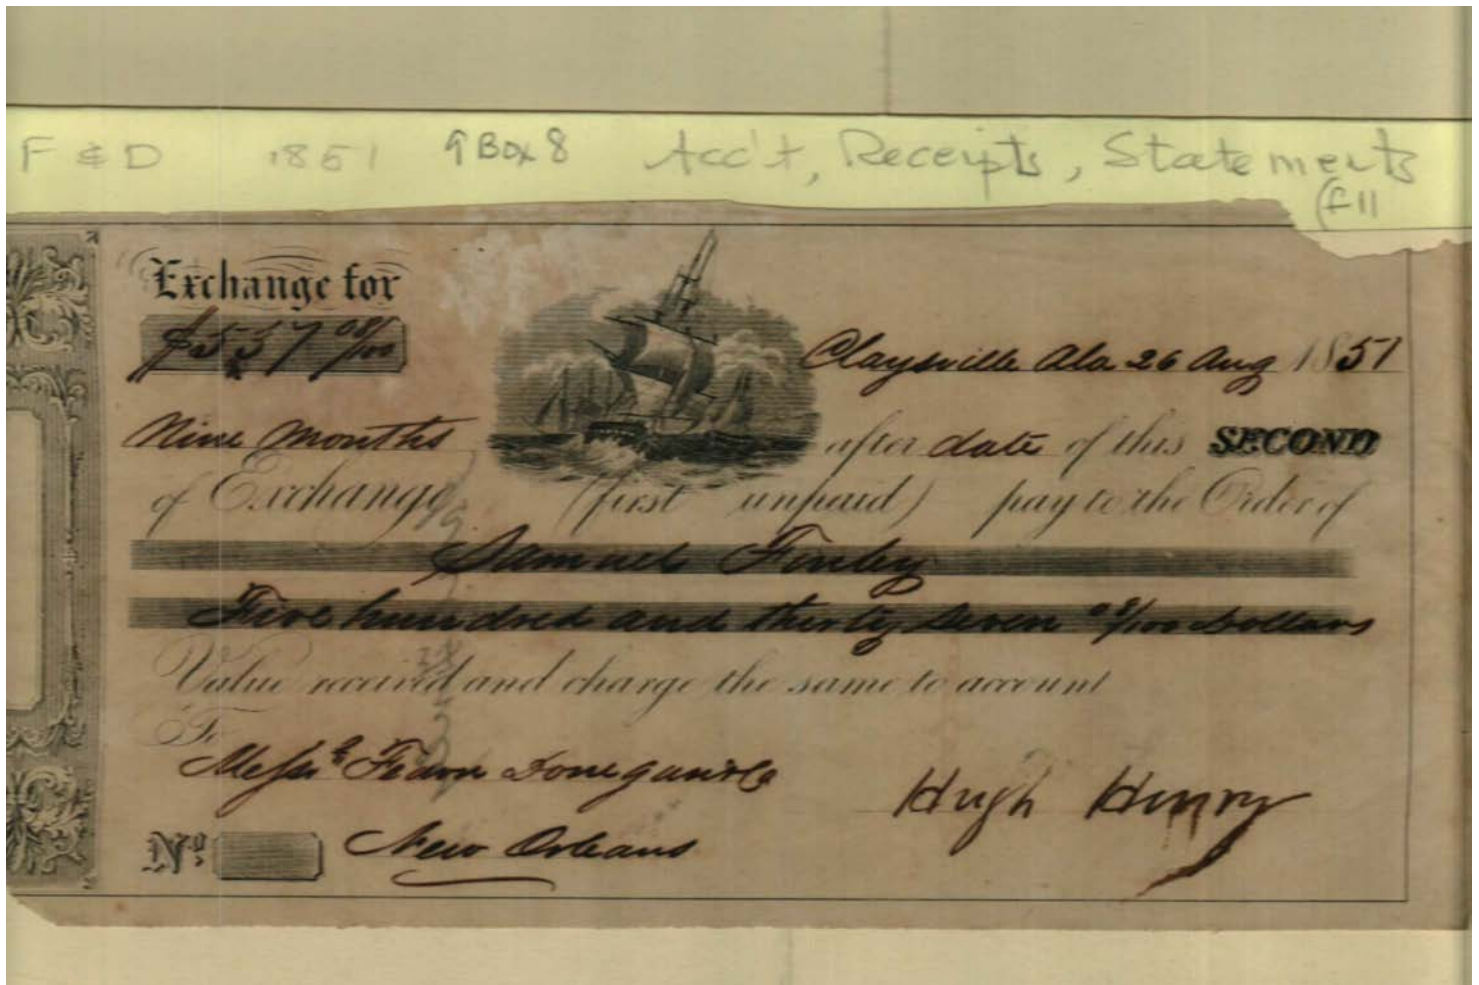 F & D 1851 9 Box 8 Acc't, Receipts, Statements
(f 11
Exchange for
$537 08/100
Claysville Ala 26 Aug 1851
Nine Months after date of this SECOND
of Exchange (first unpaid) pay to the Order of
Samuel Finley
Five hundred and thirty seven 08/100 Dollars
Value received and charge the same to account
To
Messrs Fearn Donegan & Co
Hugh Henry
No. New Orleans